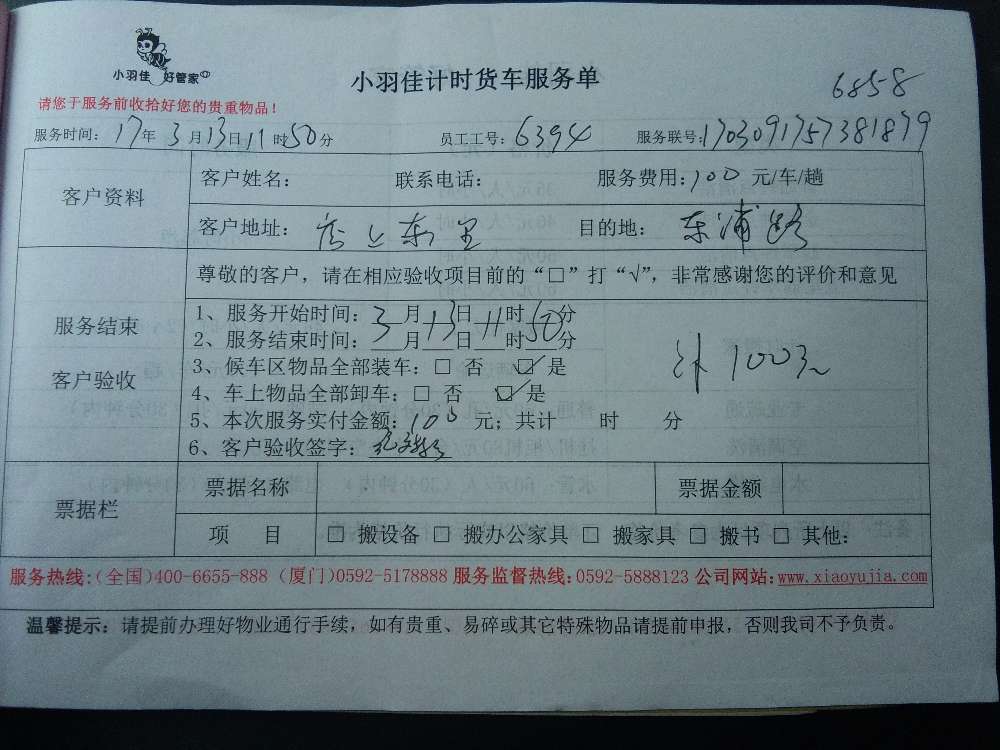 小羽佳 好管家
小羽佳计时货车服务单
6858
请您于服务前收拾好您的贵重物品！
服务时间：17年3月13日11时50分 员工工号：6394 服务联号：1703091757381879
客户资料
客户姓名： 联系电话： 服务费用：100元/车/趟
客户地址：店上东里 目的地：东浦路
服务结束
客户验收
尊敬的客户，请在相应验收项目前的“□”打“√”，非常感谢您的评价和意见
1、服务开始时间：3月13日11时50分
2、服务结束时间：月日时分
3、候车区物品全部装车：□ 否 ☑ 是
4、车上物品全部卸车：□ 否 ☑ 是
5、本次服务实付金额：100元；共计 时 分
6、客户验收签字：
计100元
票据栏
票据名称 票据金额
项 目 □ 搬设备 □ 搬办公家具 □ 搬家具 □ 搬书 □ 其他：
服务热线：(全国)400-6655-888 (厦门)0592-5178888 服务监督热线：0592-5888123 公司网站：www.xiaoyujia.com
温馨提示：请提前办理好物业通行手续，如有贵重、易碎或其它特殊物品请提前申报，否则我司不予负责。